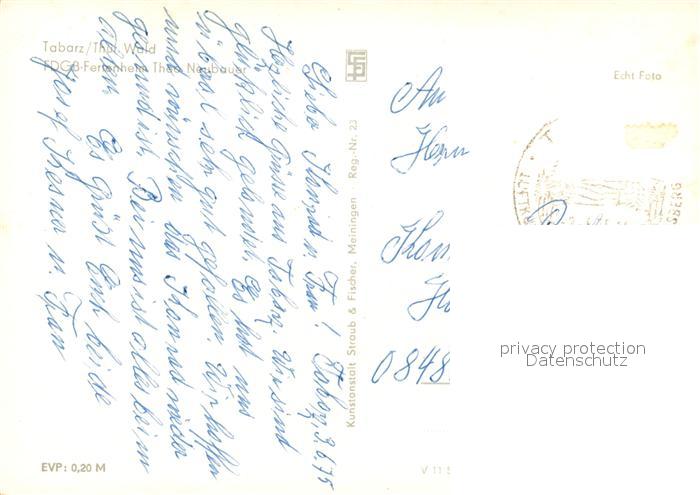 Tabarz/Thür. Wald
FDGB-Ferienheim Theo Neubauer
Tabarz, 3.6.75
Liebe Konrad u. Frau!
Herzliche Grüsse aus Tabarz. Wir sind
glücklich gelandet. Es hat uns
sehr gut gefallen. Wir hoffen
und wünschen das Konrad wieder
gesund ist. Bei uns ist alles beim
alten. Es grüßt Euch beide
Josef u. Frau
EVP: 0,20 M
Kunstanstalt Straub & Fischer, Meiningen Reg.-Nr. 23
V 11
Echt Foto
An
Herrn
0848
privacy protection
Datenschutz